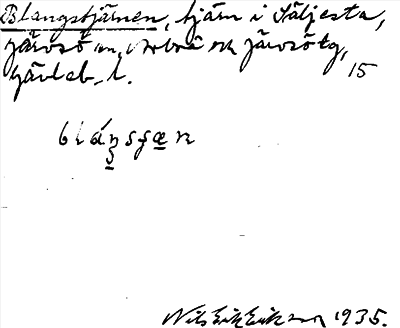 Blangstjärnen, tjärn i Säljesta,
Järvsö sn, Arbrå ok Järvsö tg,
Gävleb. l. 15
blánsʃæn
Nils Erik Eriksson 1935.